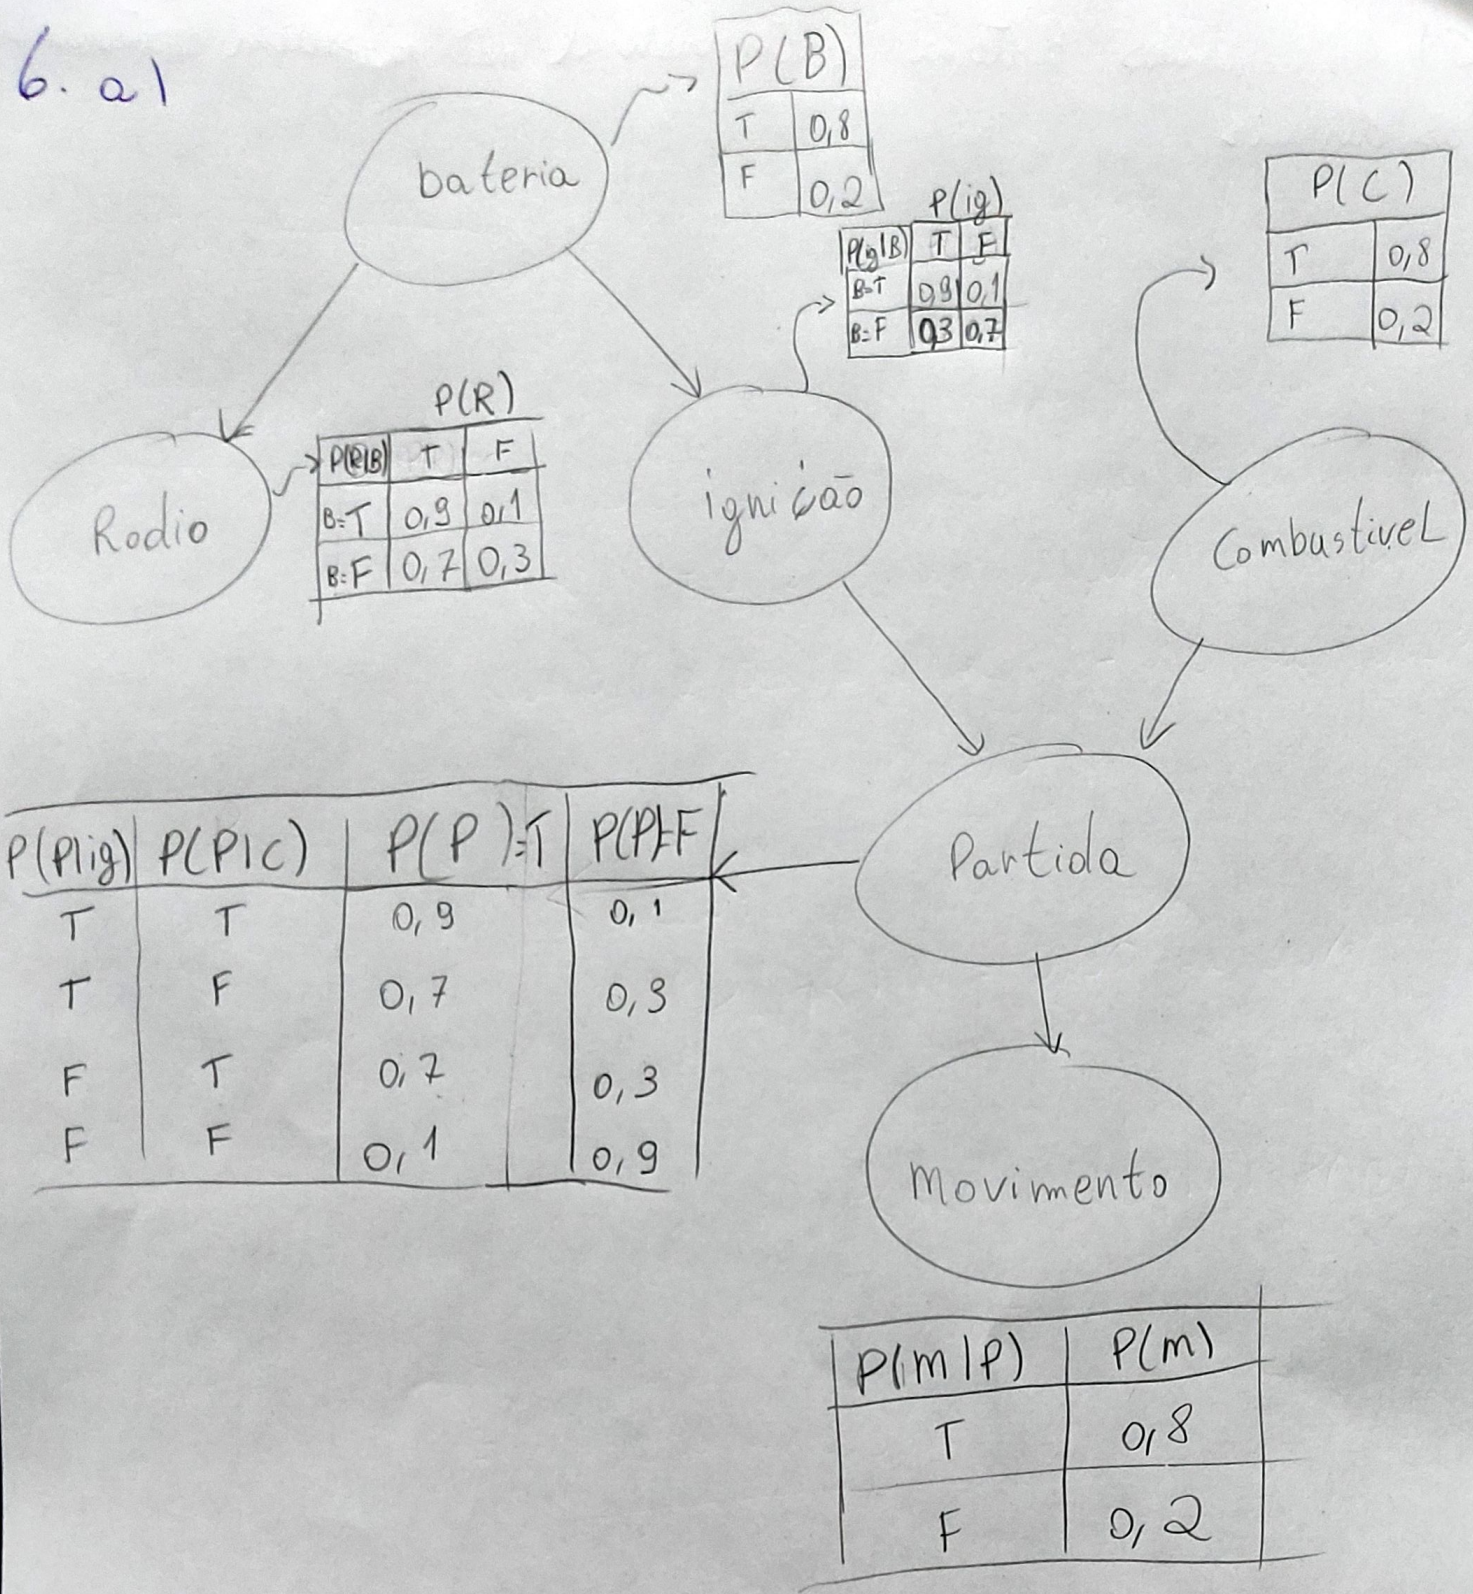 6. a)
bateria
P(B)
T 0,8
F 0,2
P(ig)
P(ig|B) T F
B=T 0,9 0,1
B=F 0,3 0,7
P(C)
T 0,8
F 0,2
Rodio
P(R)
P(R|B) T F
B=T 0,9 0,1
B=F 0,7 0,3
ignição
Combustivel
P(P|ig) P(P|C) P(P)=T P(P)=F
T T 0,9 0,1
T F 0,7 0,3
F T 0,7 0,3
F F 0,1 0,9
Partida
Movimento
P(m|P) P(m)
T 0,8
F 0,2